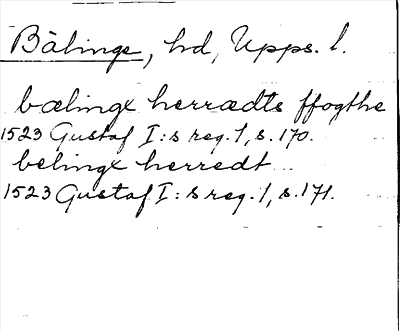 Bälinge, hd, Upps. l.
bælinge herrædts ffogthe
1523 Gustaf I:s reg. 1, s. 170.
belinge herredt
1523 Gustaf I:s reg. 1, s. 171.